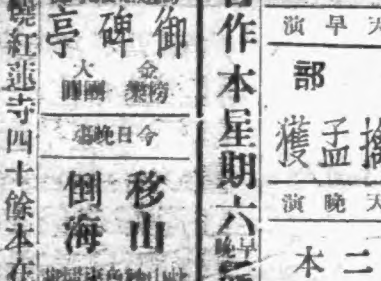 天早演
部
擒孟獲
天晚演
二本
合作本星期六早晚
御碑亭
金榜樂
大團圓
今日晚場
移山倒海
燒紅蓮寺四十餘本在